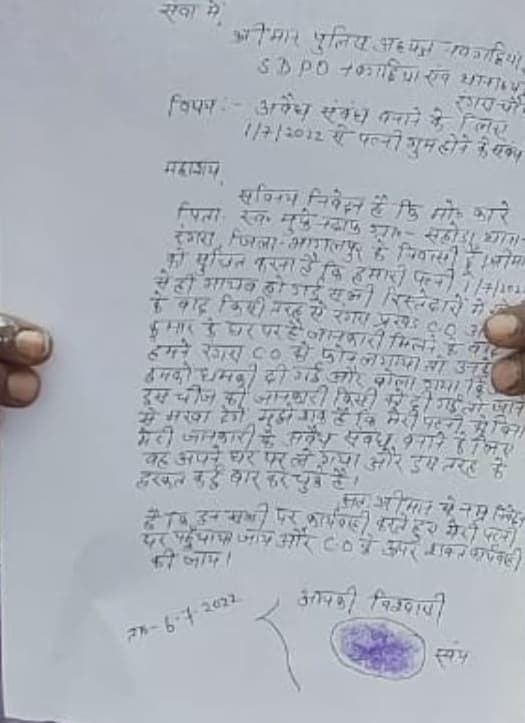 सेवा में,
श्रीमान पुलिस अधक्षक नवगछिया
SDPO नवगछिया एवं थाना
रंगरा चौ
विषय :- अवैध संबंध बनाने के लिए
1/7/2022 से पत्नी गुम होने के संबंध
महाशय,
सविनय निवेदन है कि मो०
पिता- स्व० ग्राम- सहोड़ा थाना-
रंगरा, जिला- भागलपुर के निवासी हूँ। श्रीमान
को सुचित करना है कि हमारी पत्नी 1/7/2022
से ही गायब हो गई सभी रिस्तेदारों में
के बाद किसी तरह से रंगरा प्रखंड CO
कुमार के घर पर है जानकारी मिलने के बाद
हमने रंगरा CO को फोन लगाया तो
हमको धमकी दी गई और बोला गया कि
इस चीज की जानकारी किसी को दी गई तो जान
से मरवा देंगे मुझे शक है कि मेरी पत्नी को बिना
मेरी जानकारी के अवैध संबंध बनाने के लिए
वह अपने घर पर ले गया और इस तरह के
हरकत कई बार कर चुके है।
अतः श्रीमान से नम्र निवेदन
है कि इन सभी पर कार्यवाही करते हुए मेरी पत्नी
घर पहुंचाया जाय और CO के उपर कार्यवाही
की जाय।
आपकी विश्वासी
ता०- 6-7-2022